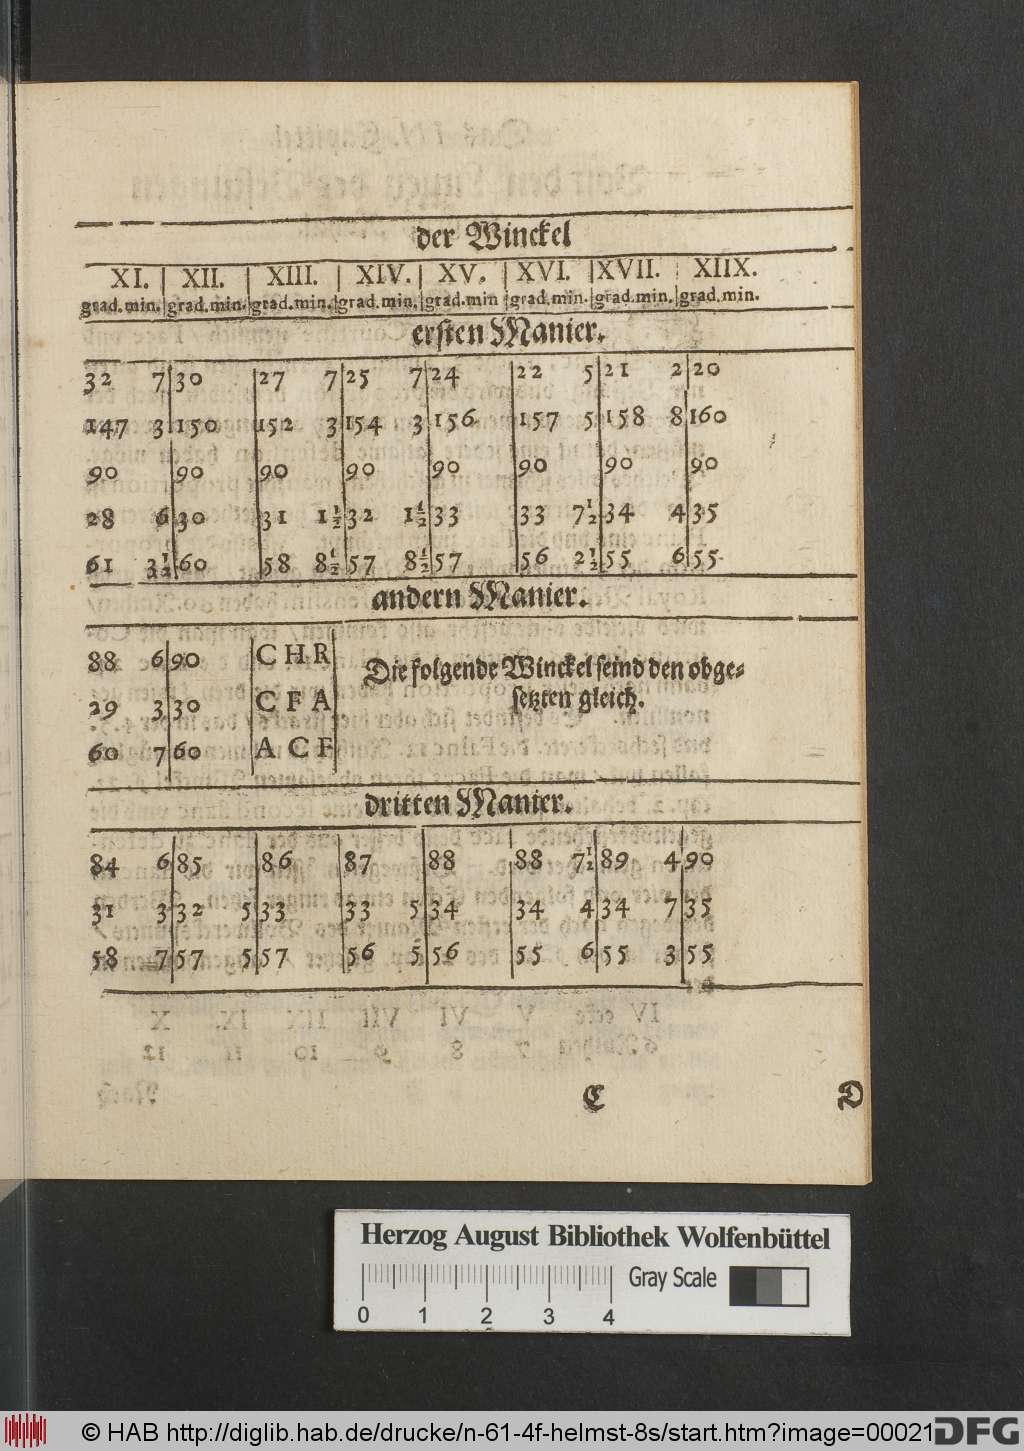 der Winckel
XI. | XII. | XIII. | XIV. | XV. | XVI. | XVII. | XIIX.
grad. min. | grad. min. | grad. min. | grad. min. | grad. min | grad. min. | grad. min. | grad. min.
ersten Manier.
32 7 | 30 | 27 7 | 25 7 | 24 | 22 5 | 21 2 | 20
147 3 | 150 | 152 3 | 154 3 | 156 | 157 5 | 158 8 | 160
90 | 90 | 90 | 90 | 90 | 90 | 90 | 90
28 6 | 30 | 31 1½ | 32 1½ | 33 | 33 7½ | 34 4 | 35
61 3½ | 60 | 58 8½ | 57 8½ | 57 | 56 2½ | 55 6 | 55
andern Manier.
88 6 | 90 | C H R
29 3 | 30 | C F A
60 7 | 60 | A C F
Die folgende Winckel seind den obge-
setzten gleich.
dritten Manier.
84 6 | 85 | 86 | 87 | 88 | 88 7½ | 89 4 | 90
31 3 | 32 5 | 33 | 33 5 | 34 | 34 4 | 34 7 | 35
58 7 | 57 5 | 57 | 56 5 | 56 | 55 6 | 55 3 | 55
C D
Herzog August Bibliothek Wolfenbüttel
Gray Scale
0 1 2 3 4
© HAB http://diglib.hab.de/drucke/n-61-4f-helmst-8s/start.htm?image=00021
DFG